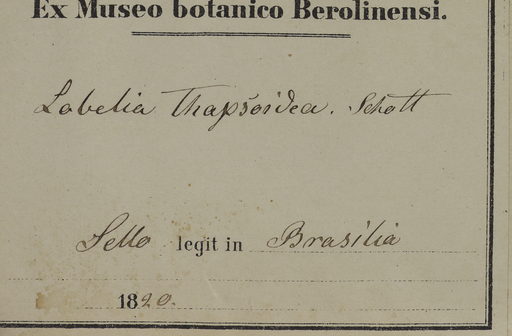 Ex Museo botanico Berolinensi.
Lobelia Thapsoidea. Schott
Sello legit in Brasilia
1820.